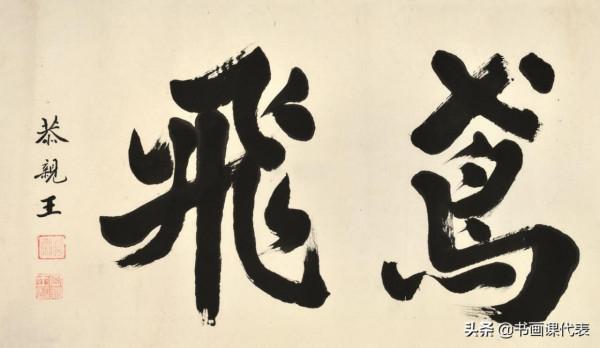 鳶飛
恭親王
头条 @书画课代表